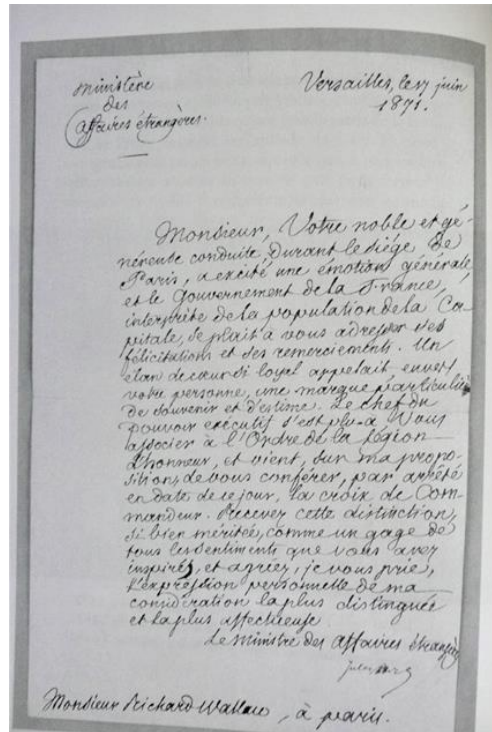 Ministère
des
Affaires étrangères.
Versailles, le 17 juin
1871.
Monsieur, Votre noble et gé-
néreuse conduite, durant le siége de
Paris, a excité une émotion générale,
et le Gouvernement de la France,
interprète de la population de la Ca-
pitale, se plait à vous adresser ses
félicitations et ses remerciements. Un
élan de cœur si loyal appelait envers
votre personne, une marque particulière
de souvenir et d'estime. Le chef du
pouvoir exécutif s'est plu à Vous
associer à l'Ordre de la Légion
d'honneur, et vient, sur ma propo-
sition, de vous conférer, par arrêté
en date de ce jour, la croix de Com-
mandeur. Recevez cette distinction,
si bien méritée, comme un gage de
tous les sentiments que vous avez
inspirés, et agréez, je vous prie,
l'expression personnelle de ma
considération la plus distinguée
et la plus affectueuse.
Le Ministre des Affaires étrangères
Monsieur Richard Wallace, à Paris.